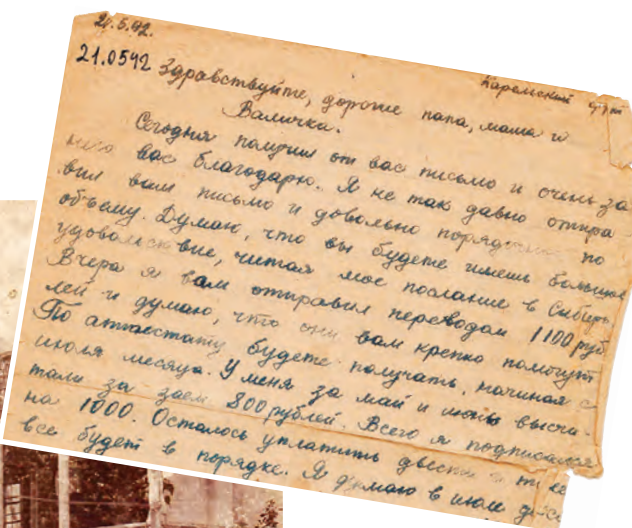 21.5.42.
21.0542 Карельский фронт
Здравствуйте, дорогие папа, мама и
Валичка.
Сегодня получил от вас письмо и очень за
него вас благодарю. Я не так давно отпра
вил вам письмо и довольно порядочное по
объему. Думаю, что вы будете иметь большое
удовольствие, читая мое послание в Сибирь.
Вчера я вам отправил переводом 1100 руб
лей и думаю, что они вам крепко помогут
По аттестату будете получать, начиная с
июля месяца. У меня за май и июнь высчи-
тали за заем 800 рублей. Всего я подписался
на 1000. Осталось уплатить двести и
все будет в порядке. Я думаю в июле